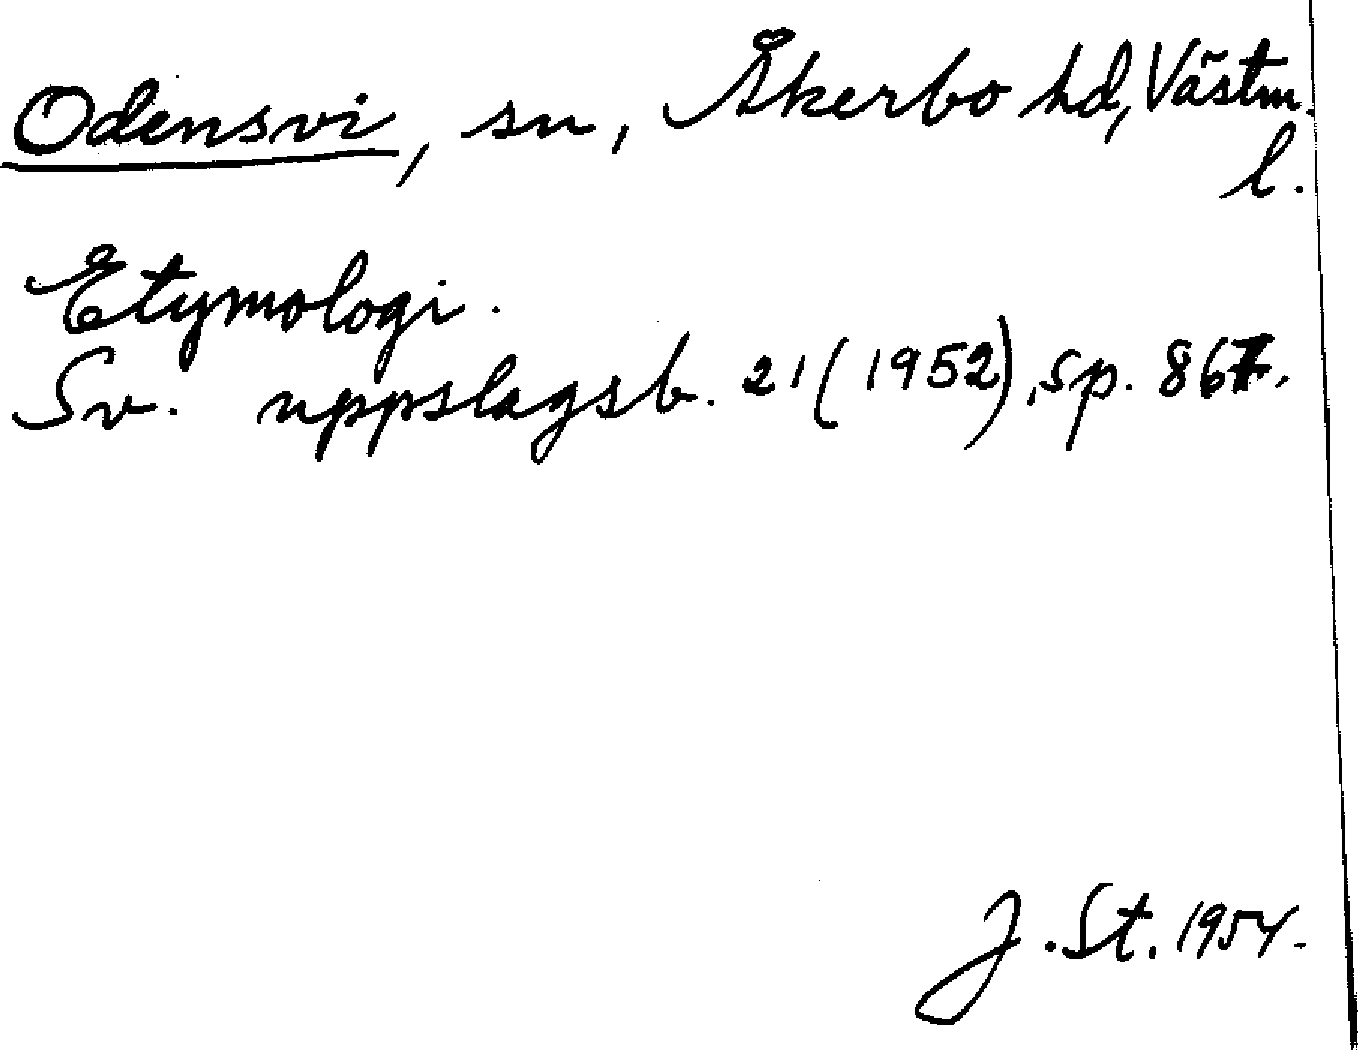 Odensvi, sn, Åkerbo hd, Västm.
l.
Etymologi.
Sv. uppslagsb. 21 (1952), sp. 867.
J. St. 1954.